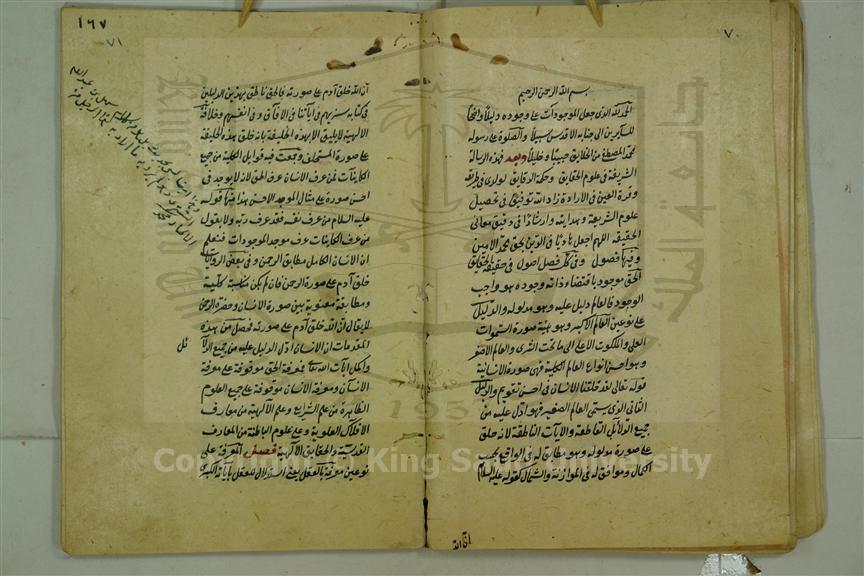 ٧٠
بسم الله الرحمن الرحيم
الحمد لله الذى جعل الموجودات على وجوده دليلا واضحا
للسآيرين الى جنابه الاقدس سبيلا والصلوة على رسوله
محمد المصطفى من الخلايق حبيبا وخليلا وبعد فهذه الرسالة
الشريفة فى علوم الحقايق وحكمة الدقايق لولدى فى طريقه
وقرة العين فى الارادة زاد الله توفيقى فى تحصيل
علوم الشريعة وهدايته وارشادا فى دقيق معانى
الحقيقه اللهم اجعل فى الدين بحق محمد الامين
وفيها فصول وفى كل فصل اصول فى حقيقة الحقايق
الحق موجود باقتضاء ذاته وجوده هو واجب
الوجود فالعالم دليل عليه وهو مدلوله والدليل
على نوعين العالم الاكبر وهو هيئة صورة السموات
العلى والملكوت الاعلى الى ما تحت الثرى والعالم الاصغر
وهو احسن انواع العالم الكلية فهى صورة الانسانية
قوله تعالى لقد خلقنا الانسان فى احسن تقويم والدليل
الثانى الذى يسمى العالم الصغير فهو ادل عليه من
جميع الدلائل القاطعة والآيات الناطقة لانه خلق
على صورة مدلوله وهو مطابق له فى الواقع بحسب
الكمال وموافق له فى الموازنة والشمال كقوله عليه السلام
ان الله
١٦٧
٧١
ان الله خلق آدم على صورته فالحق ناطق بهذين الدليلين
فى كتابه سنريهم آياتنا فى الآفاق وفى انفسهم وخلافة
الالهية لا يليق الا بهذه الخليفة بانه خلق هذه الخليفة
على صورة المستخلف وجمعت فيه قوابل الكلية من جميع
الكاينات فمن عرف الانسان عرف الحق لانه لا يوجد فى
احسن صورة على مثال الموجد الاحسن هذا منها قوله
عليه السلام من عرف نفسه فقد عرف ربه ولا يقول
من عرف الكاينات عرف موجد الموجودات فنعلم
ان الانسان الكامل مطابق الرحمن وفى بعض الروايات
خلق آدم على صورة الرحمن فان لم يكن مناسبة كلية
ومطابقة معنوية بين صورة الانسان وحضرة الرحمن
لا يقال ان الله خلق آدم على صورته فحصل من هذه
المقدمات ان الانسان ادل الدليل عليه من جميع الدلا
ئل
واكمل آيات الله تعالى فمعرفة الحق موقوفة على معرفة
الانسان ومعرفة الانسان موقوفة على جميع العلوم
الظاهرة من علم الشرايع وعلم الالهية من معارف
الافلاك العلوية وعلى علوم الباطنة من المعارف
القدسية والحقايق الالهية فصل المعرفة على
نوعين معرفة بالعقل يعنى استدلال للعقل بآياته الكبرى